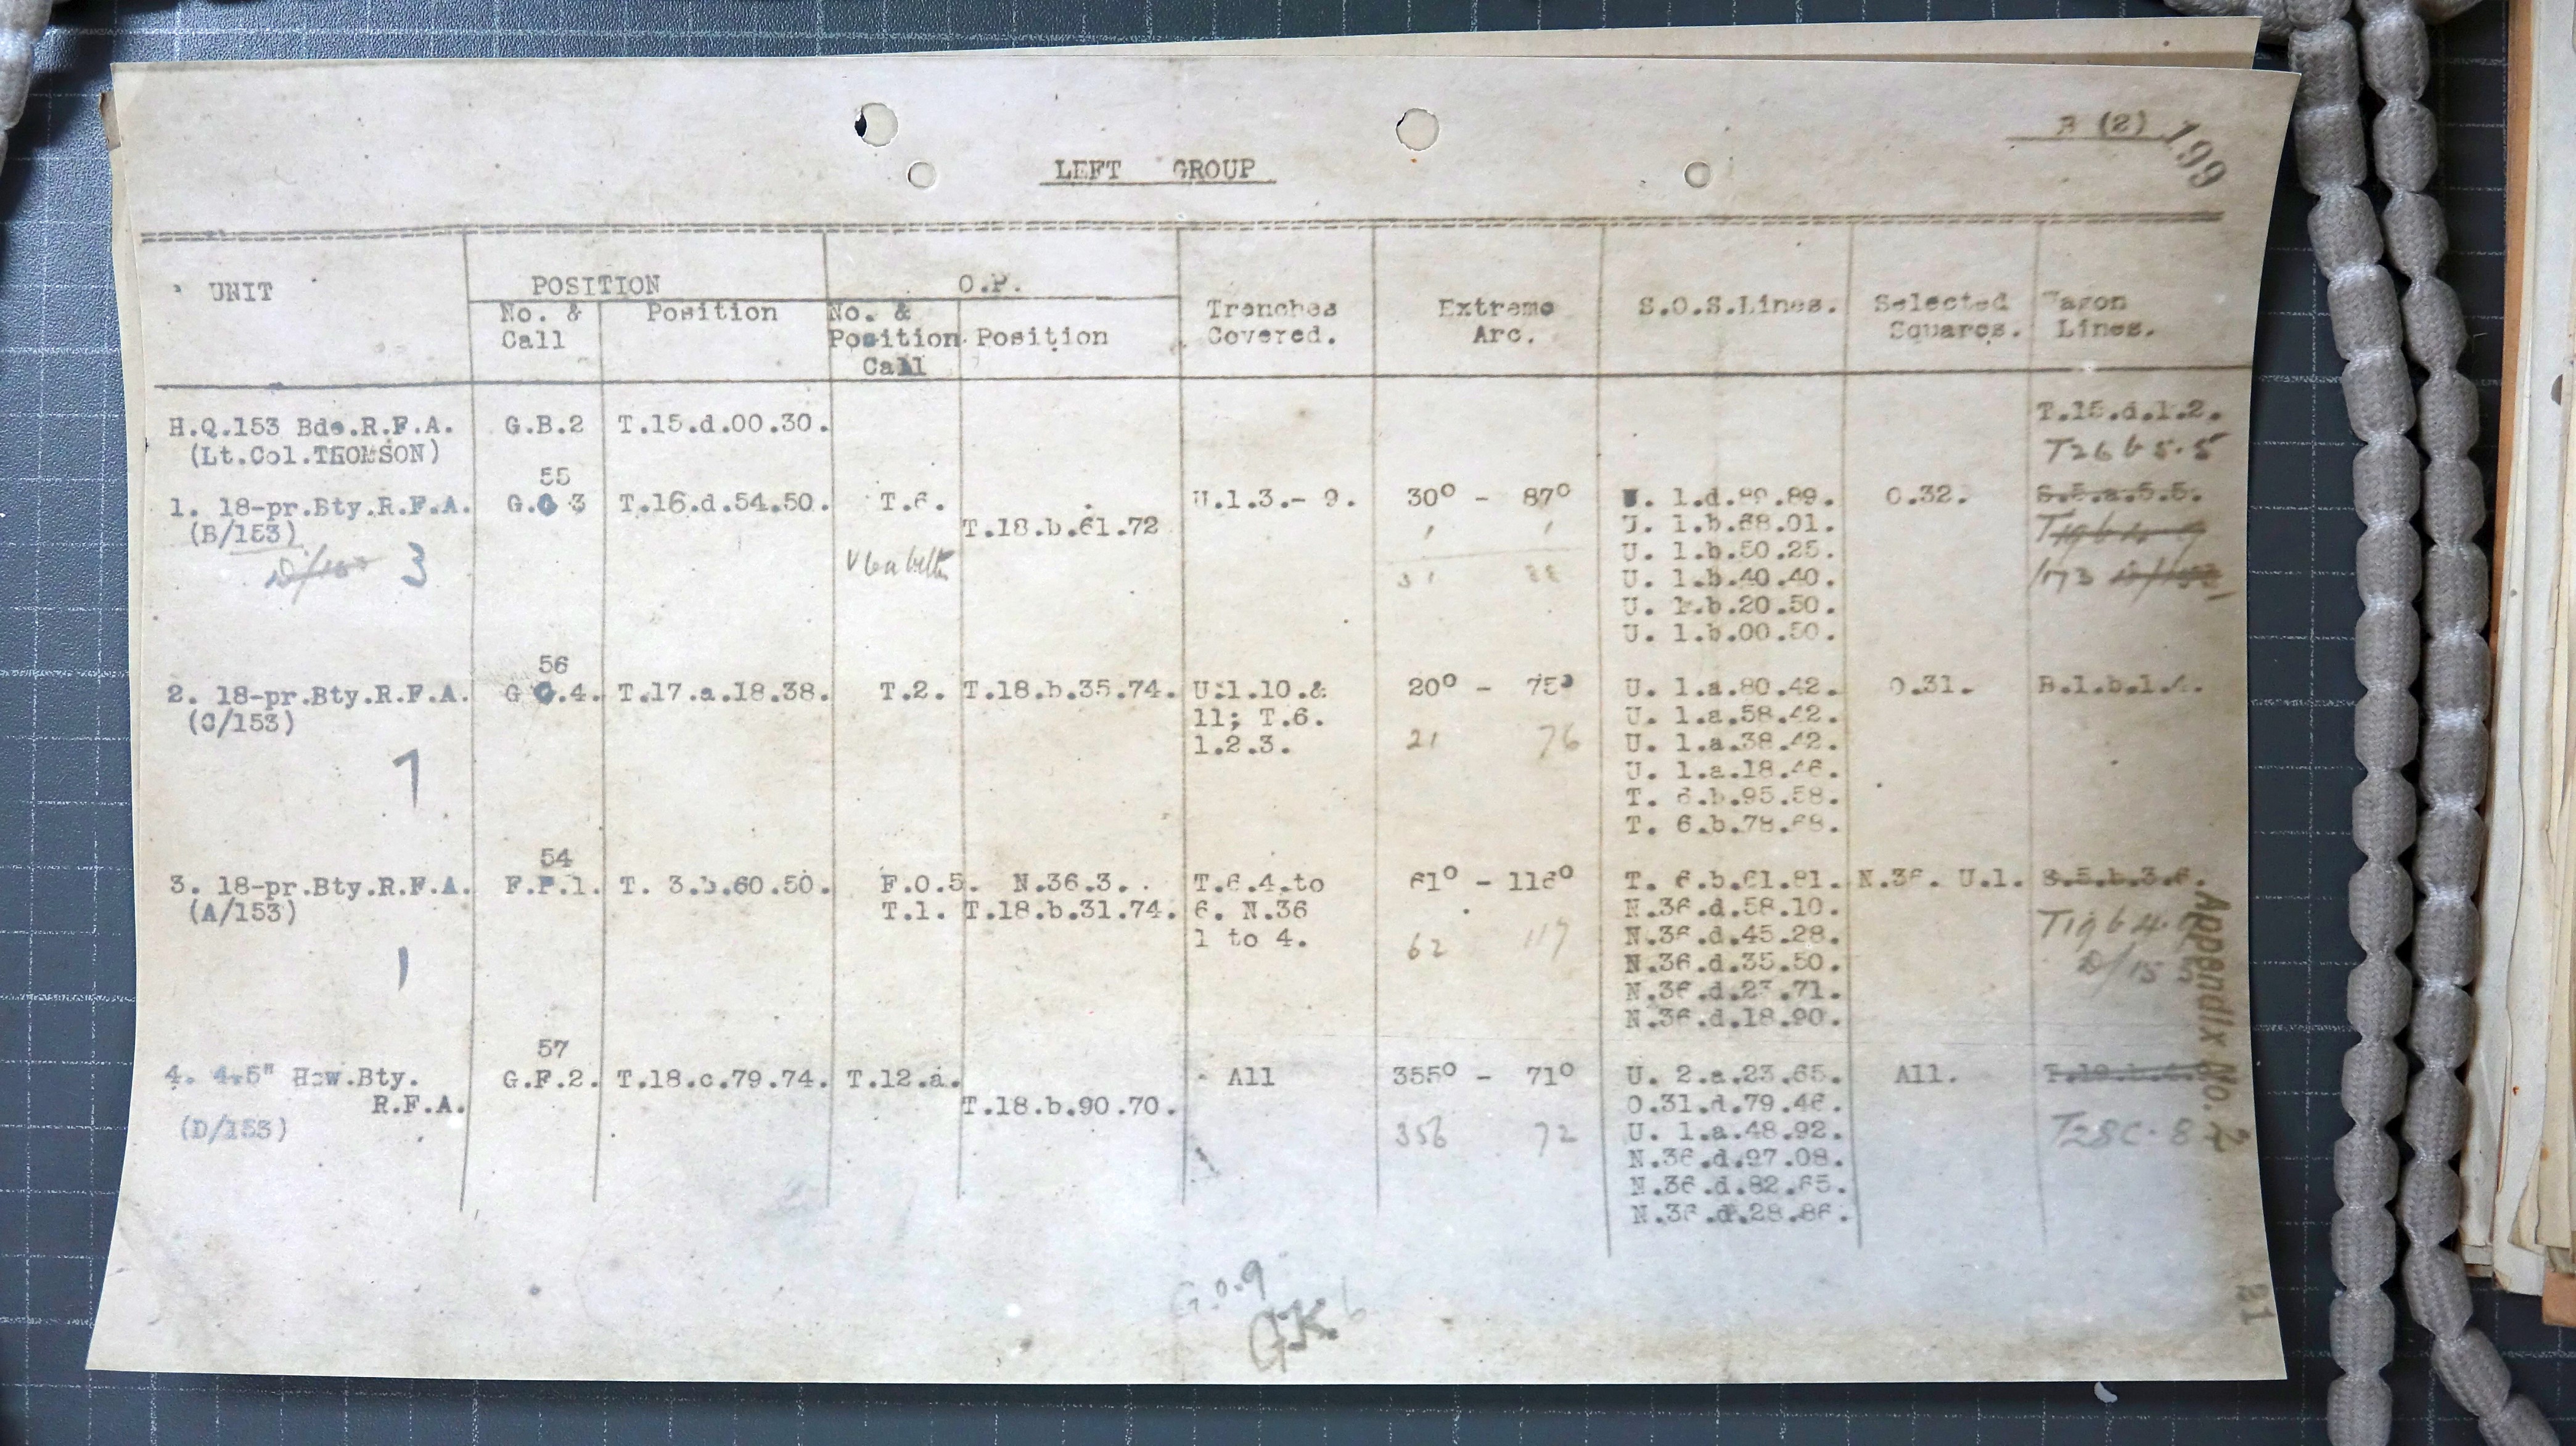 (2)
199
LEFT GROUP
UNIT
POSITION
O.P.
No. & Call
Position
No. & Position Call
Position
Trenches Covered.
Extreme Arc.
S.O.S.Lines.
Selected Squares.
Wagon Lines.
H.Q.153 Bde.R.F.A. G.B.2 T.15.d.00.30. T.15.d.1.2.
(Lt.Col.THOMSON) T26b5.5
55
1. 18-pr.Bty.R.F.A. G. 3 T.16.d.54.50. T.6. U.1.3.- 9. 30° - 87° U. 1.d.89.89. O.32. S.5.a.5.5.
(B/153) T.18.b.61.72 U. 1.b.68.01.
U. 1.b.50.25.
3 31 88 U. 1.b.40.40. 173
U. 1.b.20.50.
U. 1.b.00.50.
56
2. 18-pr.Bty.R.F.A. G .4. T.17.a.18.38. T.2. T.18.b.35.74. U.1.10.& 20° - 75° U. 1.a.80.42. O.31. B.1.b.1.4.
(C/153) 11; T.6. U. 1.a.58.42.
1.2.3. 21 76 U. 1.a.38.42.
U. 1.a.18.46.
T. 6.b.95.58.
T. 6.b.78.68.
54
3. 18-pr.Bty.R.F.A. F.P.1. T. 3.b.60.50. F.O.5. N.36.3. T.6.4.to 61° - 116° T. 6.b.61.81. N.36. U.1. S.5.b.3.6.
(A/153) T.1. T.18.b.31.74. 6. N.36 N.36.d.58.10.
1 to 4. 62 117 N.36.d.45.28.
N.36.d.35.50.
N.36.d.23.71.
N.36.d.18.90.
57
4. 4.5" How.Bty. G.F.2. T.18.c.79.74. T.12.a. All 355° - 71° U. 2.a.23.65. All.
R.F.A. T.18.b.90.70. O.31.d.79.46.
(D/153) 356 72 U. 1.a.48.92.
N.36.d.97.08.
N.36.d.82.65.
N.36.d.28.86.
Appendix No. 2
G.O.9
G.K. 6
21